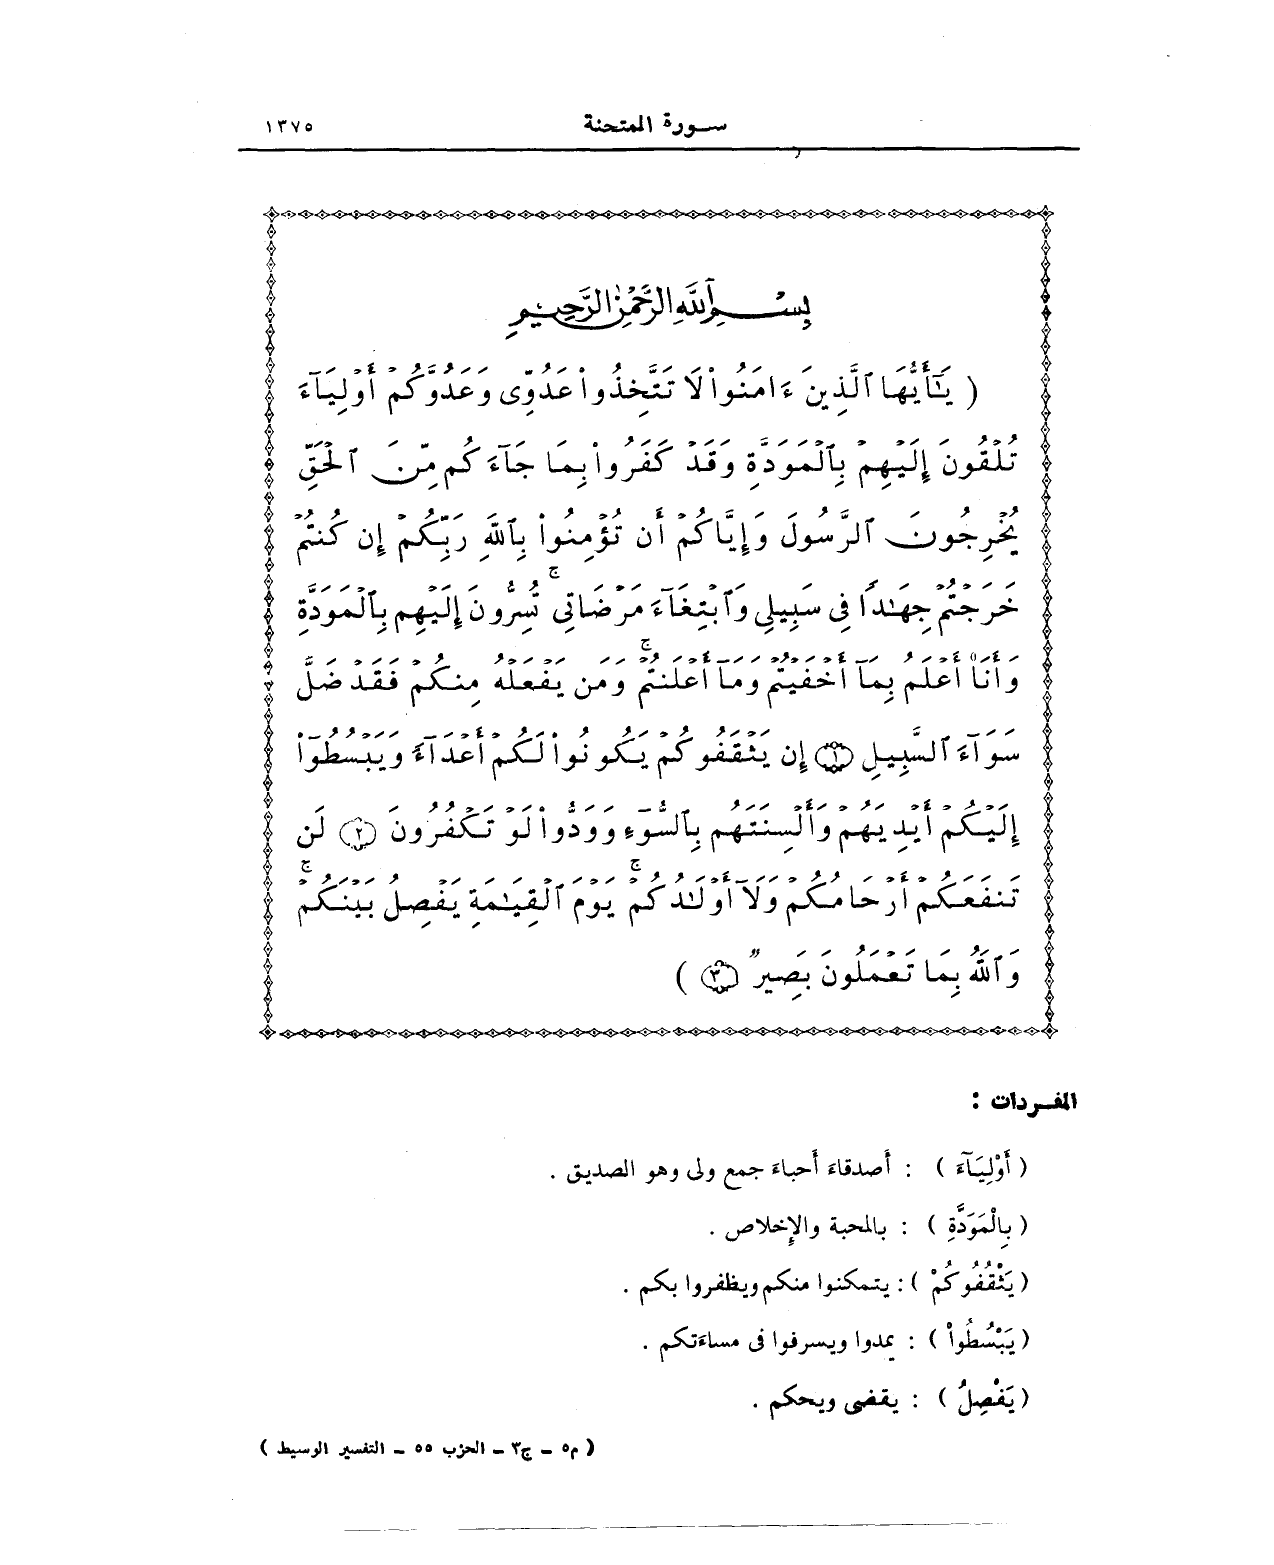 سورة الممتحنة ١٣٧٥
بِسْمِ ٱللَّهِ الرَّحْمَٰنِ الرَّحِيمِ
( يَٰٓأَيُّهَا ٱلَّذِينَ ءَامَنُوا۟ لَا تَتَّخِذُوا۟ عَدُوِّى وَعَدُوَّكُمْ أَوْلِيَآءَ
تُلْقُونَ إِلَيْهِم بِٱلْمَوَدَّةِ وَقَدْ كَفَرُوا۟ بِمَا جَآءَكُم مِّنَ ٱلْحَقِّ
يُخْرِجُونَ ٱلرَّسُولَ وَإِيَّاكُمْ أَن تُؤْمِنُوا۟ بِٱللَّهِ رَبِّكُمْ إِن كُنتُمْ
خَرَجْتُمْ جِهَٰدًا فِى سَبِيلِى وَٱبْتِغَآءَ مَرْضَاتِى ۚ تُسِرُّونَ إِلَيْهِم بِٱلْمَوَدَّةِ
وَأَنَا۠ أَعْلَمُ بِمَآ أَخْفَيْتُمْ وَمَآ أَعْلَنتُمْ ۚ وَمَن يَفْعَلْهُ مِنكُمْ فَقَدْ ضَلَّ
سَوَآءَ ٱلسَّبِيلِ ١ إِن يَثْقَفُوكُمْ يَكُونُوا۟ لَكُمْ أَعْدَآءً وَيَبْسُطُوٓا۟
إِلَيْكُمْ أَيْدِيَهُمْ وَأَلْسِنَتَهُم بِٱلسُّوٓءِ وَوَدُّوا۟ لَوْ تَكْفُرُونَ ٢ لَن
تَنفَعَكُمْ أَرْحَامُكُمْ وَلَآ أَوْلَٰدُكُمْ ۚ يَوْمَ ٱلْقِيَٰمَةِ يَفْصِلُ بَيْنَكُمْ ۚ
وَٱللَّهُ بِمَا تَعْمَلُونَ بَصِيرٌ ٣ )
المفردات :
( أَوْلِيَآءَ ) : أصدقاءَ أحباءَ جمع ولى وهو الصديق .
( بِالْمَوَدَّةِ ) : بالمحبة والإخلاص .
( يَثْقَفُوكُمْ ) : يتمكنوا منكم ويظفروا بكم .
( يَبْسُطُواْ ) : يمدوا ويسرفوا فى مساءَتكم .
( يَفْصِلُ ) : يقضى ويحكم .
( م٥ – ج٣ – الحزب ٥٥ – التفسير الوسيط )